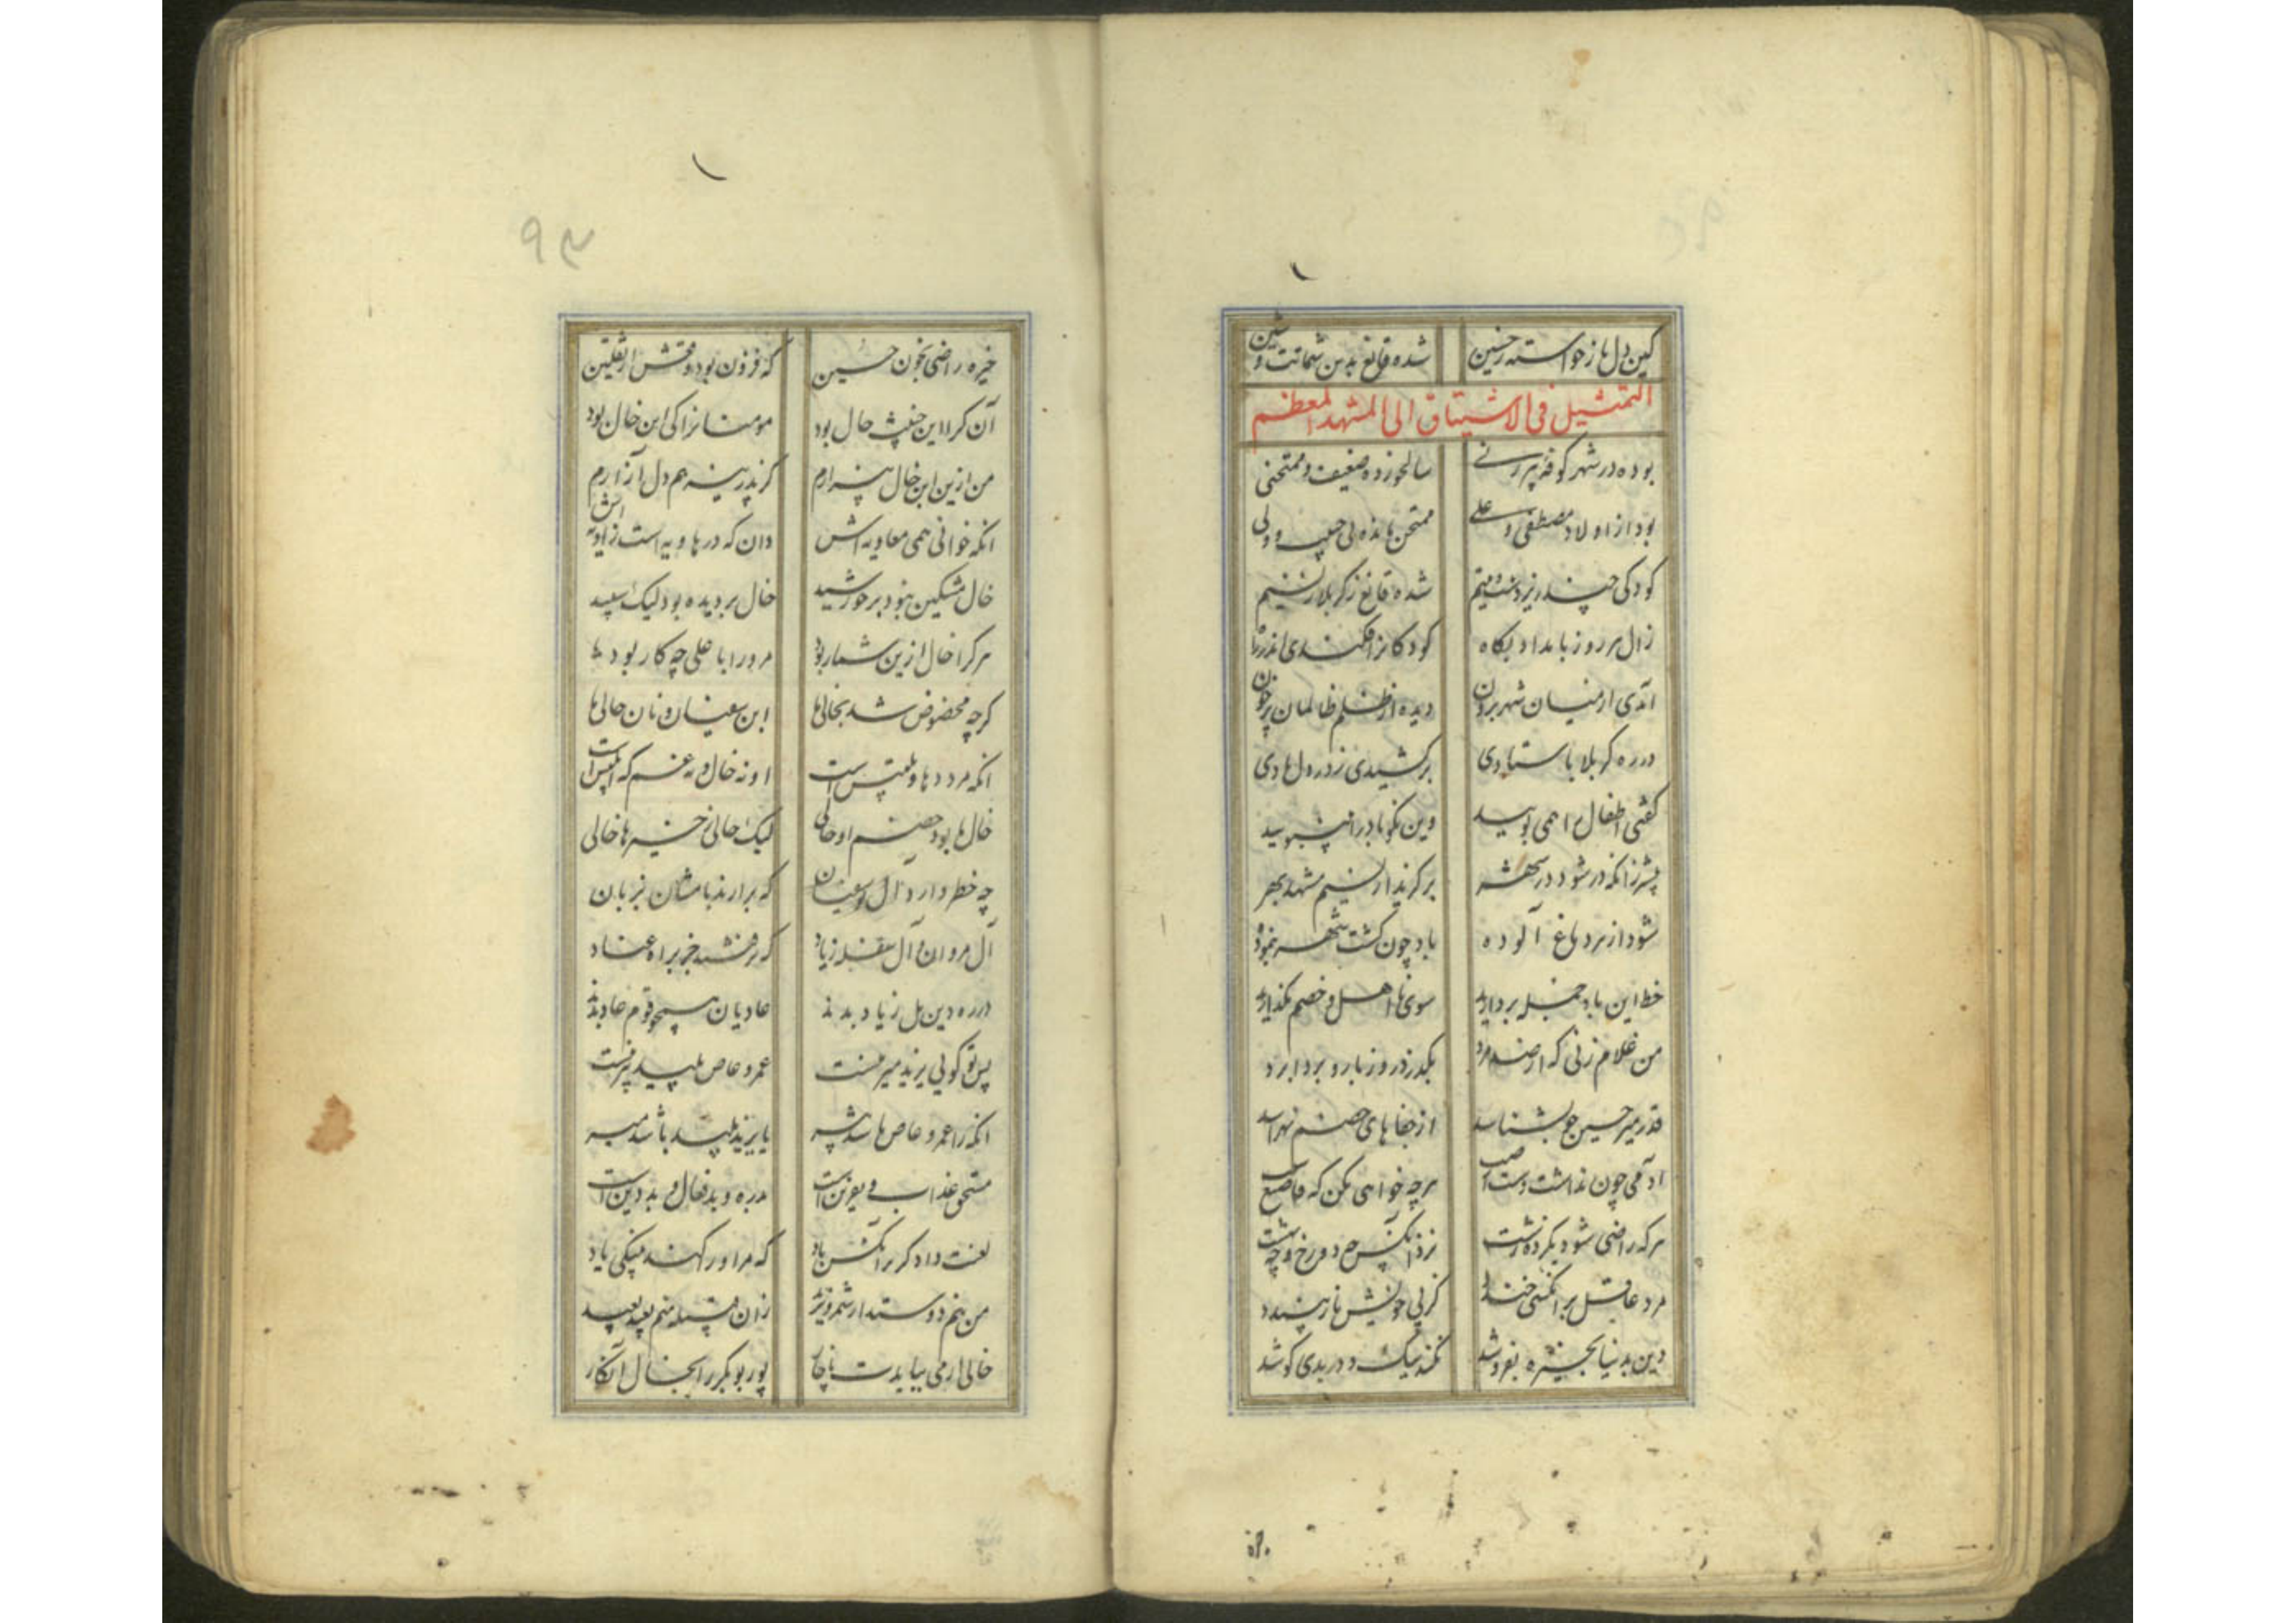 کین دل‌ها ز خواسته ز حسین شده قانع بدین شماتت و شین
التمثیل فی الاشتیاق الی المشهد المعظم
بوده در شهر کوفه پیرزنی سالخورده ضعیف و ممتحنی
بود از اولاد مصطفی و علی ممتحن مانده بی حبیب و ولی
کودکی چند زیردست و یتیم شده قانع ز کربلا بنسیم
زال هر روز بامداد بگاه کودکانرا فکندی اندر راه
آمدی از میان شهر برون دیده از ظلم ظالمان پر خون
در ره کربلا باستادی برکشیدی ز درد دل بادی
گفتی اطفال را همی بویید وین نکو باد را بنبویید
پیشتر زانکه در شود در شهر برگرید از نسیم مشهد بهر
شود از هر دماغ آلوده باد چون گشت شهر پیموده
حظ این باد جمله بردارید سوی نااهل و خصم مگذارید
من غلام زنی که از صد مرد بگذرد روز بار و بردابرد
قدر میر حسین چو بشناسد از جفاهای خصم نهراسد
آدمی چون نداشت دست از صنع هرچه خواهی بکن که فاصنع
هرکه راضی شود بکرده زشت نزد آنکس چه دوزخ و چه بهشت
مرد عاقل بر آنکسی خندد کز پی خویش نار بپسندد
دین بدنیا بخیره بفروشد نکند نیک و در بدی کوشد
خیره راضی بخون حسین که فزون بود وقعش از ثقلین
آن کرا این چنین خال بود مومنانرا کی ابن خال بود
من ازین ابن خال بیزارم کز پدر نیز هم دل آزارم
انکه خوانی همی معاویه اش دان که در هاویه است زاویه اش
خال مشکین نبود بر خورشید خال بر دیده بود لیک سپید
هر کرا خال ازین شمار بود مر ورا با علی چه کار بود
گرچه مخصوص شد بخالی‌ها ابن سفیان و نان حالی‌ها
انکه مرد دها و تلبیس است او نه خال و نه عم که ابلیس است
خال ما بود خصم او حالی لیک حالی ز خیرها خالی
چه خطر دارد آل بوسفیان که برآرند نامشان بزبان
آل مروان و آل سفله زیاد که نرفتند جز براه عناد
در ره دین بل زیاد بدند عادیان همچو قوم عاد بدند
پس تو گویی یزید میر منست عمرو عاص پلید پیر منست
انکه را عمرو عاص باشد پیر یا یزید پلید باشد میر
مستحق عذاب و نفرین است بدره و بدفعال و بد دین است
لعنت دادگر برآنکس باد که مر او را کند بنیکی یاد
من نیم دوستدار شمر و یزید زان قبیله منم بعهد بعید
خالی ار می ببایدت ناچار پور بوبکر را بخال انگار